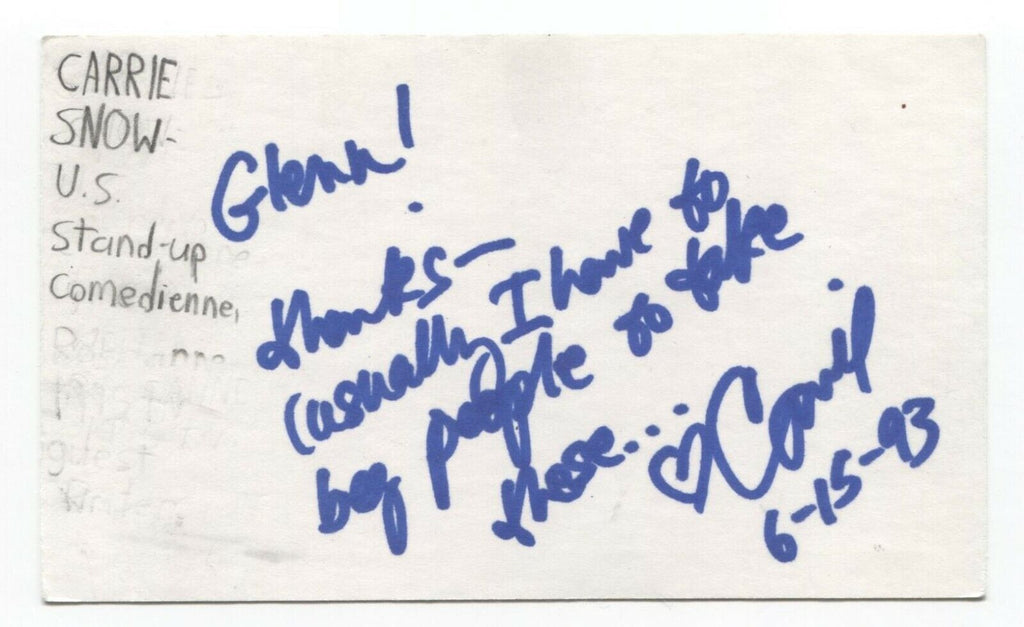 CARRIE
SNOW-
U.S.
Stand-up
Comedienne,
Glenn!
thanks-
(usually I have to
beg people to take
these..
♡ Carrie
6-15-93